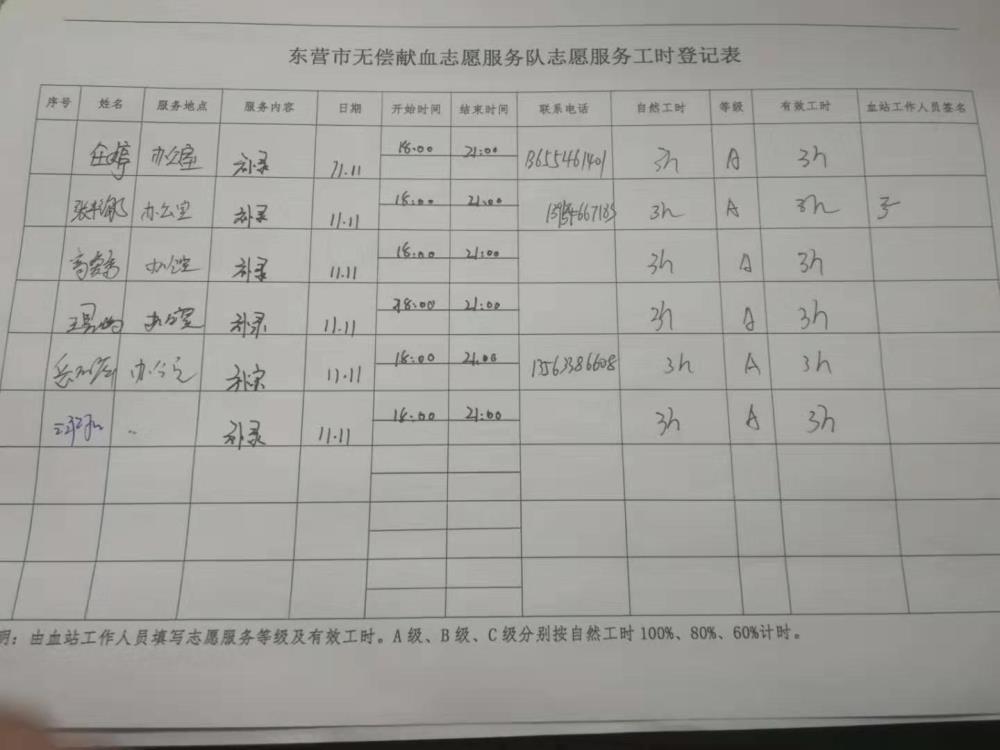 东营市无偿献血志愿服务队志愿服务工时登记表
序号 姓名 服务地点 服务内容 日期 开始时间 结束时间 联系电话 自然工时 等级 有效工时 血站工作人员签名
任婷 办公室 补录 11.11 18:00 21:00 13655461401 3h A 3h
办公室 补录 11.11 18:00 21:00 3h A 3h
办公室 补录 11.11 18:00 21:00 3h A 3h
办公室 补录 11.11 18:00 21:00 3h A 3h
办公室 补录 11.11 18:00 21:00 13563386608 3h A 3h
补录 11.11 18:00 21:00 3h A 3h
明：由血站工作人员填写志愿服务等级及有效工时。A级、B级、C级分别按自然工时100%、80%、60%计时。